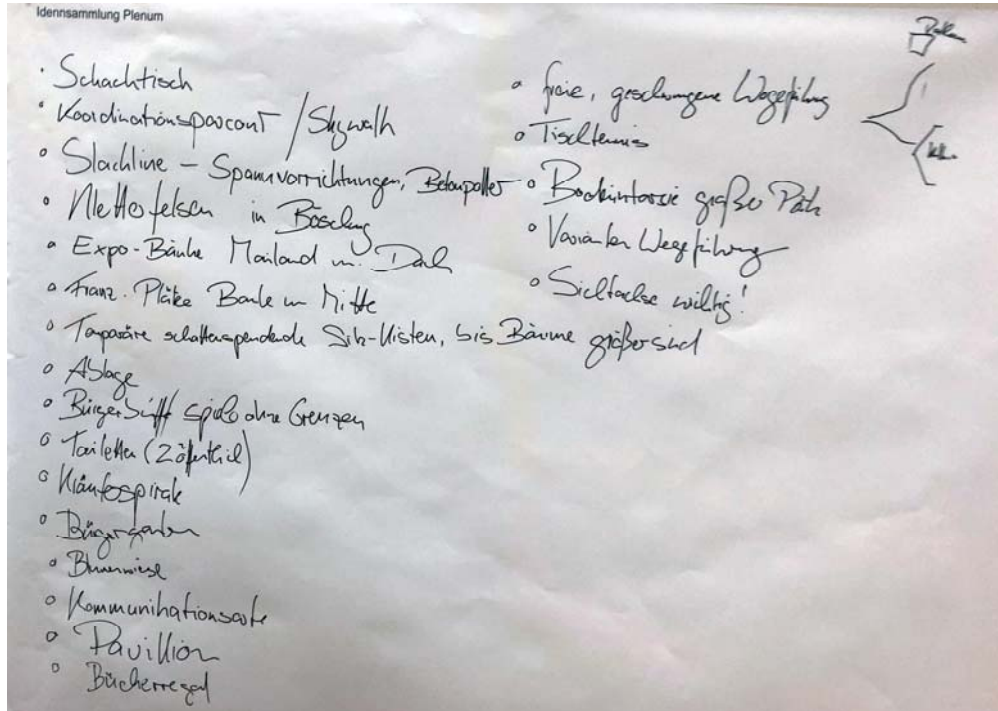 Idennsammlung Plenum
• Schachtisch
• Koordinationsparcour / Skywalk
• Slackline – Spannvorrichtungen, Betonpoller
• Kletterfelsen in Böschung
• Expo-Bänke Mailand m. Dach
• Franz. Plätze Baule in Mitte
• Temporäre schattenspendende Sitz-Kisten, bis Bäume größer sind
• Ablage
• Bürgerstift spiele ohne Grenzen
• Toiletten (2 öffentlich)
• Kräuterspirale
• Bürgergarten
• Blumenwiese
• Kommunikationsorte
• Pavillion
• Bücherregal
• freie, geschwungene Wegeführung
• Tischtennis
• großer
• Varianten Wegeführung
• Sichtachse wichtig!